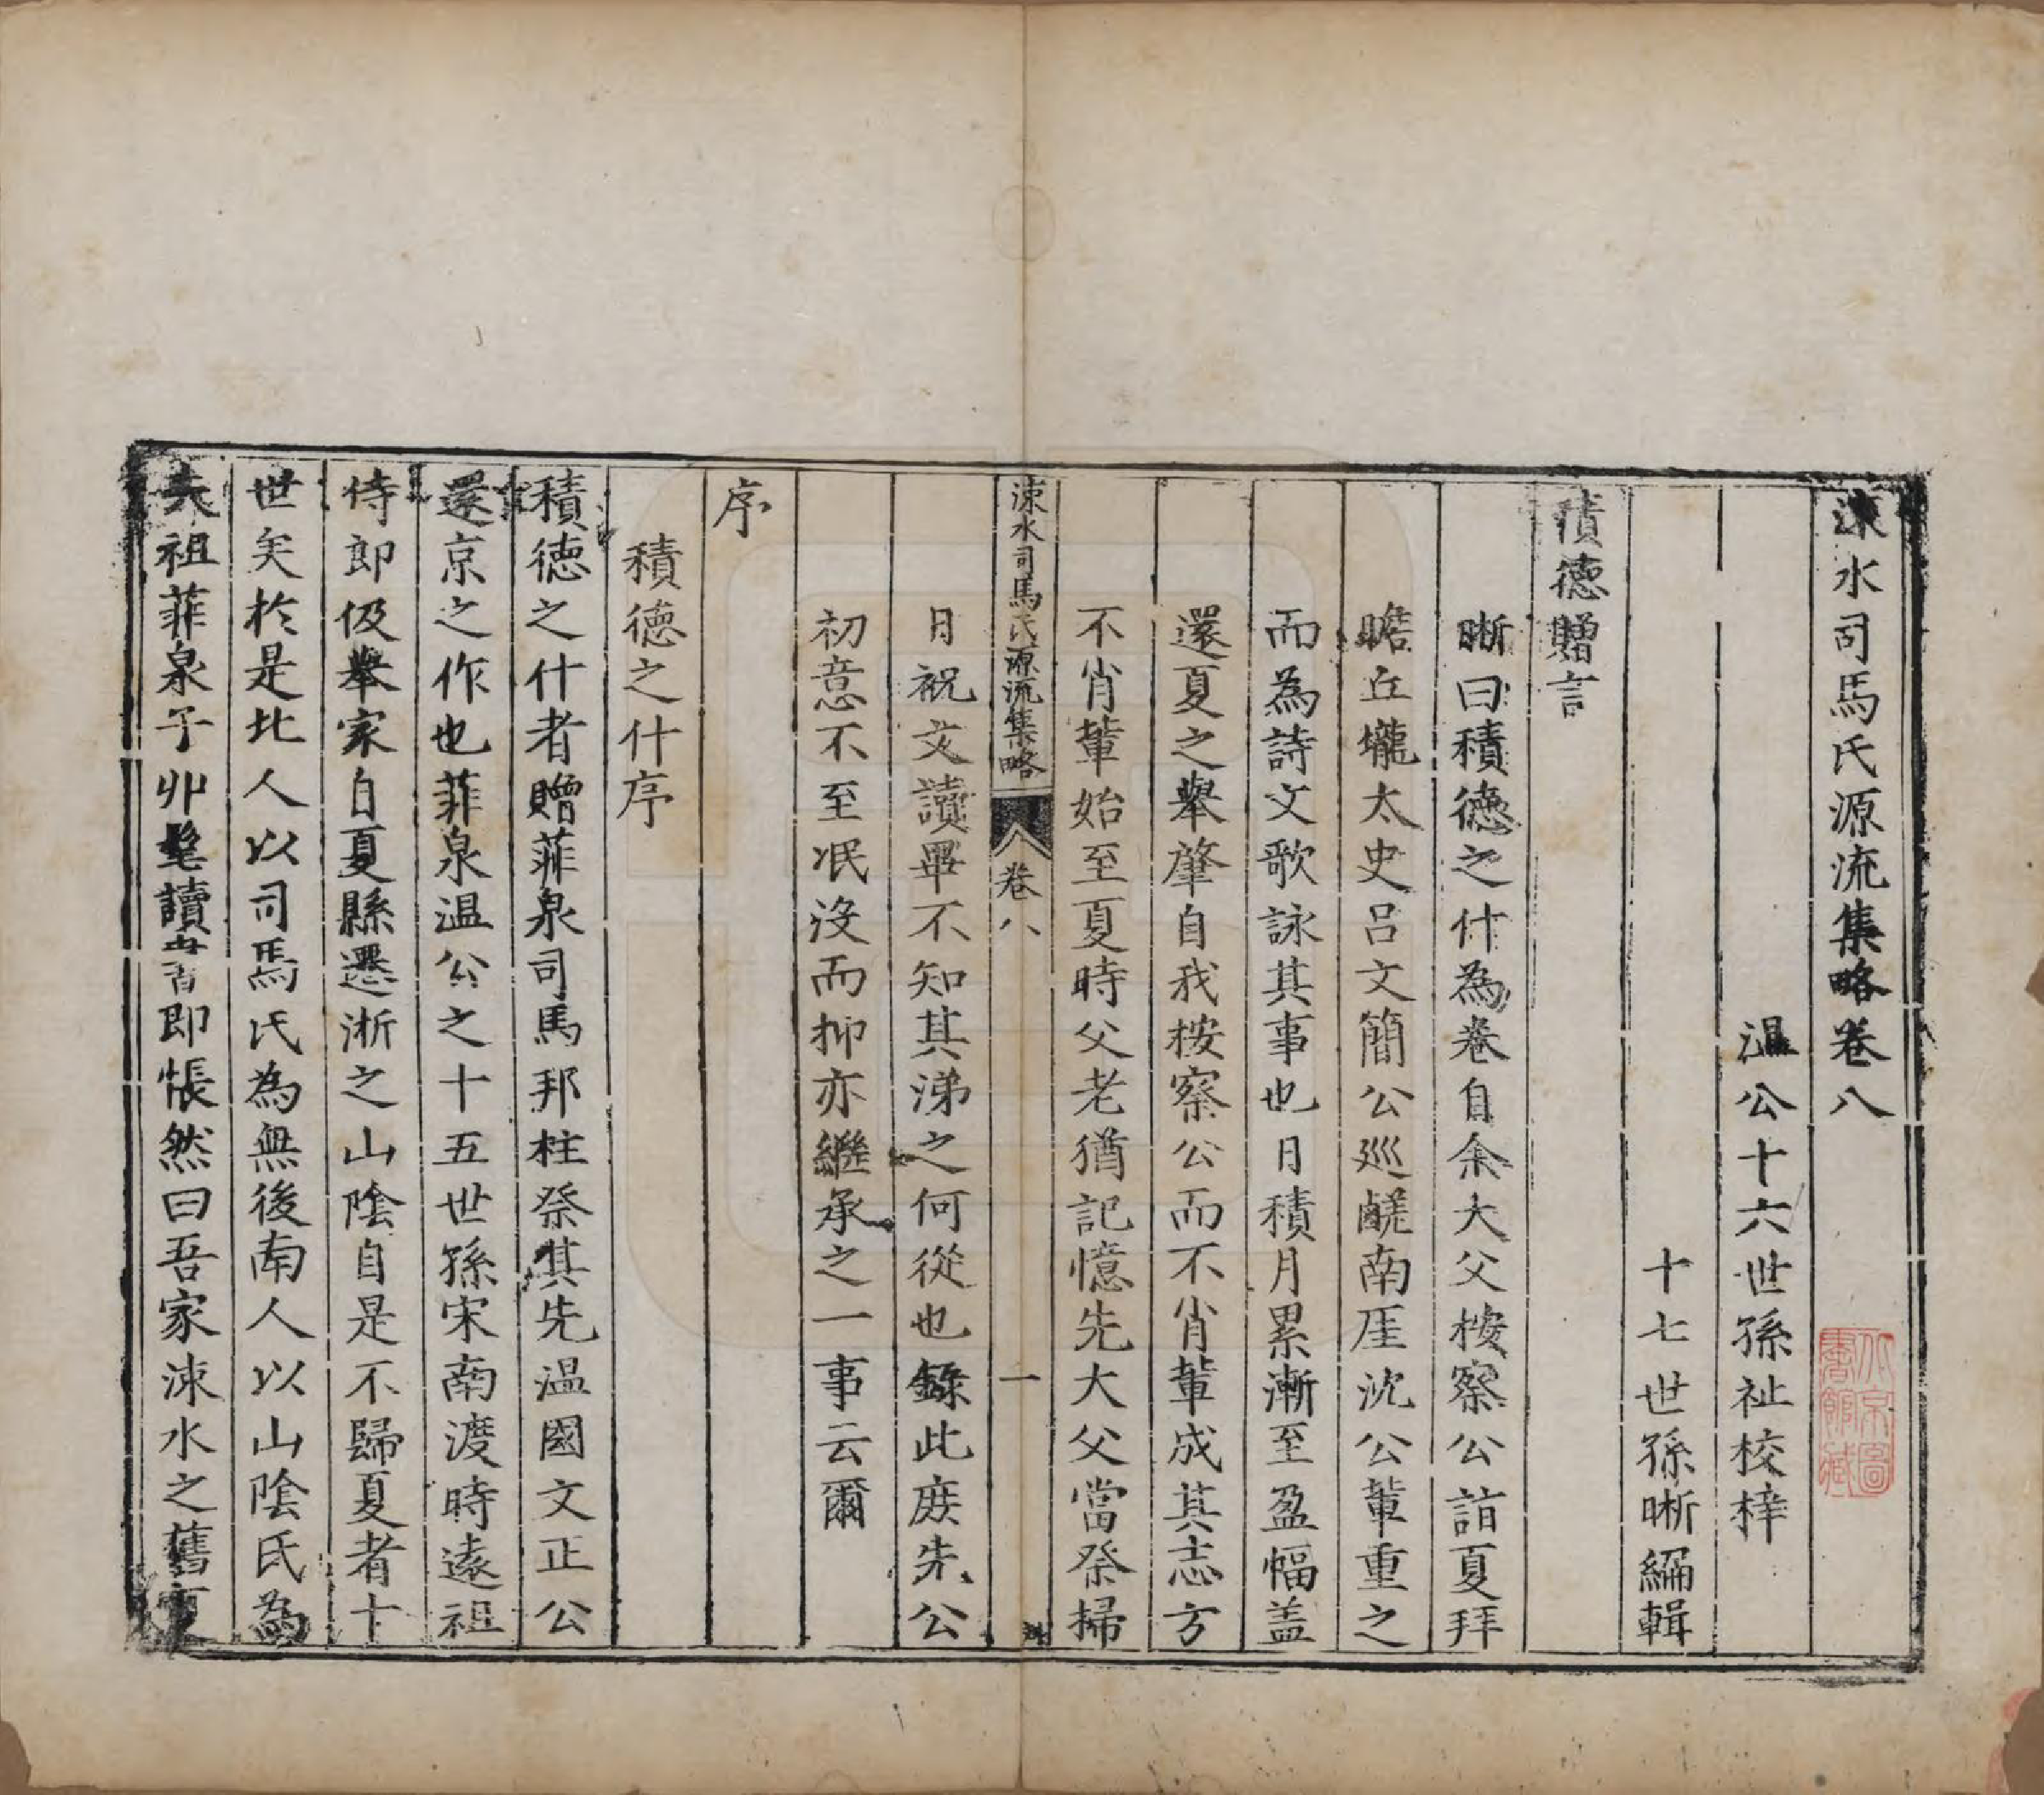 涑水司馬氏源流集略卷八
溫公十六世孫祉校梓
十七世孫晰編輯
積德贈言
晰曰積德之什為卷自余大父按察公詣夏拜
瞻丘壠太史呂文簡公巡鹺南厓沈公輩重之
而為詩文歌詠其事也日積月累漸至盈幅盖
還夏之舉肇自我按察公而不肖輩成其志方
不肖輩始至夏時父老猶記憶先大父當祭掃
涑水司馬氏源流集略 卷八 一
日祝文讀畢不知其涕之何從也錄此庻先公
初意不至泯沒而抑亦繼承之一事云爾
序
積德之什序
積德之什者贈菲泉司馬邦柱祭其先溫國文正公
還京之作也菲泉溫公之十五世孫宋南渡時遠祖
侍郎伋舉家自夏縣遷淅之山陰自是不歸夏者十
世矣於是北人以司馬氏為無後南人以山陰氏為
夫祖菲泉子丱髦讀書即悵然曰吾家涑水之舊
北京圖書館藏